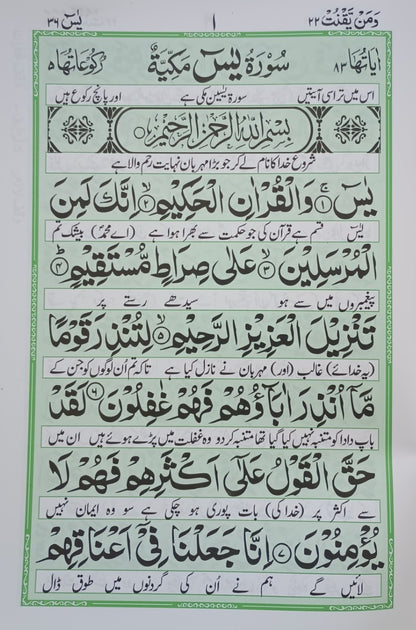 وَمَنْ يَّقْنُتْ ٢٢ ١ يٰسٓ ٣٦
اٰيَاتُهَا ٨٣ سُوْرَةُ يٰسٓ مَكِّيَّةٌ رُكُوْعَاتُهَا ٥
اس میں تراسی آیتیں سورۃ یٰسین مکی ہے اور پانچ رکوع ہیں
بِسْمِ اللّٰهِ الرَّحْمٰنِ الرَّحِيْمِ
شروع خدا کا نام لے کر جو بڑا مہربان نہایت رحم والا ہے
يٰسٓ ۚ‏﴿۱﴾ وَالْقُرْاٰنِ الْحَكِيْمِ ۙ‏﴿۲﴾ اِنَّكَ لَمِنَ
یٰسٓ قسم ہے قرآن کی جو حکمت سے بھرا ہوا ہے (اے محمدؐ) بیشک تم
الْمُرْسَلِيْنَ ۙ‏﴿۳﴾ عَلٰى صِرَاطٍ مُّسْتَقِيْمٍ ؕ‏﴿۴﴾
پیغمبروں میں سے ہو سیدھے رستے پر
تَنْزِيْلَ الْعَزِيْزِ الرَّحِيْمِ ۙ‏﴿۵﴾ لِتُنْذِرَ قَوْمًا
(یہ خدائے) غالب (اور) مہربان نے نازل کیا ہے تاکہ تم اُن لوگوں کو جن کے
مَّاۤ اُنْذِرَ اٰبَآؤُهُمْ فَهُمْ غٰفِلُوْنَ ‏﴿۶﴾ لَقَدْ
باپ دادا کو متنبہ نہیں کیا گیا تھا متنبہ کر دو وہ غفلت میں پڑے ہوئے ہیں ان میں
حَقَّ الْقَوْلُ عَلٰٓى اَكْثَرِهِمْ فَهُمْ لَا
سے اکثر پر (خدا کی) بات پوری ہو چکی ہے سو وہ ایمان نہیں
يُؤْمِنُوْنَ ‏﴿۷﴾ اِنَّا جَعَلْنَا فِىْۤ اَعْنَاقِهِمْ
لائیں گے ہم نے اُن کی گردنوں میں طوق ڈال